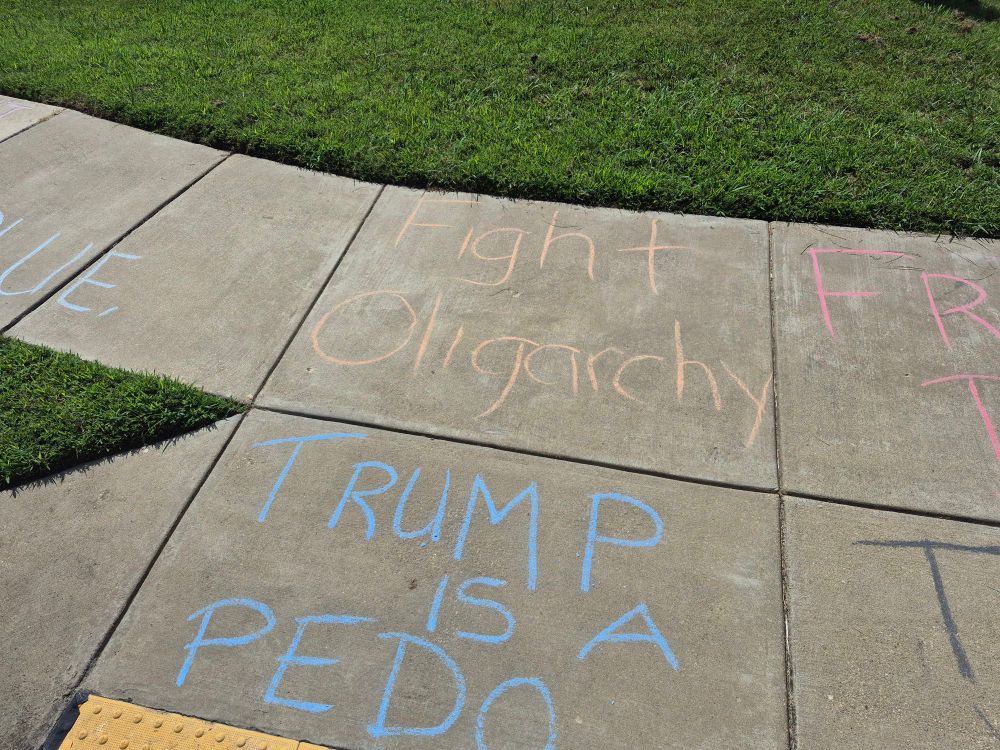 UE,
Fight
Oligarchy
FR
T
TRUMP
IS A
PEDO
T